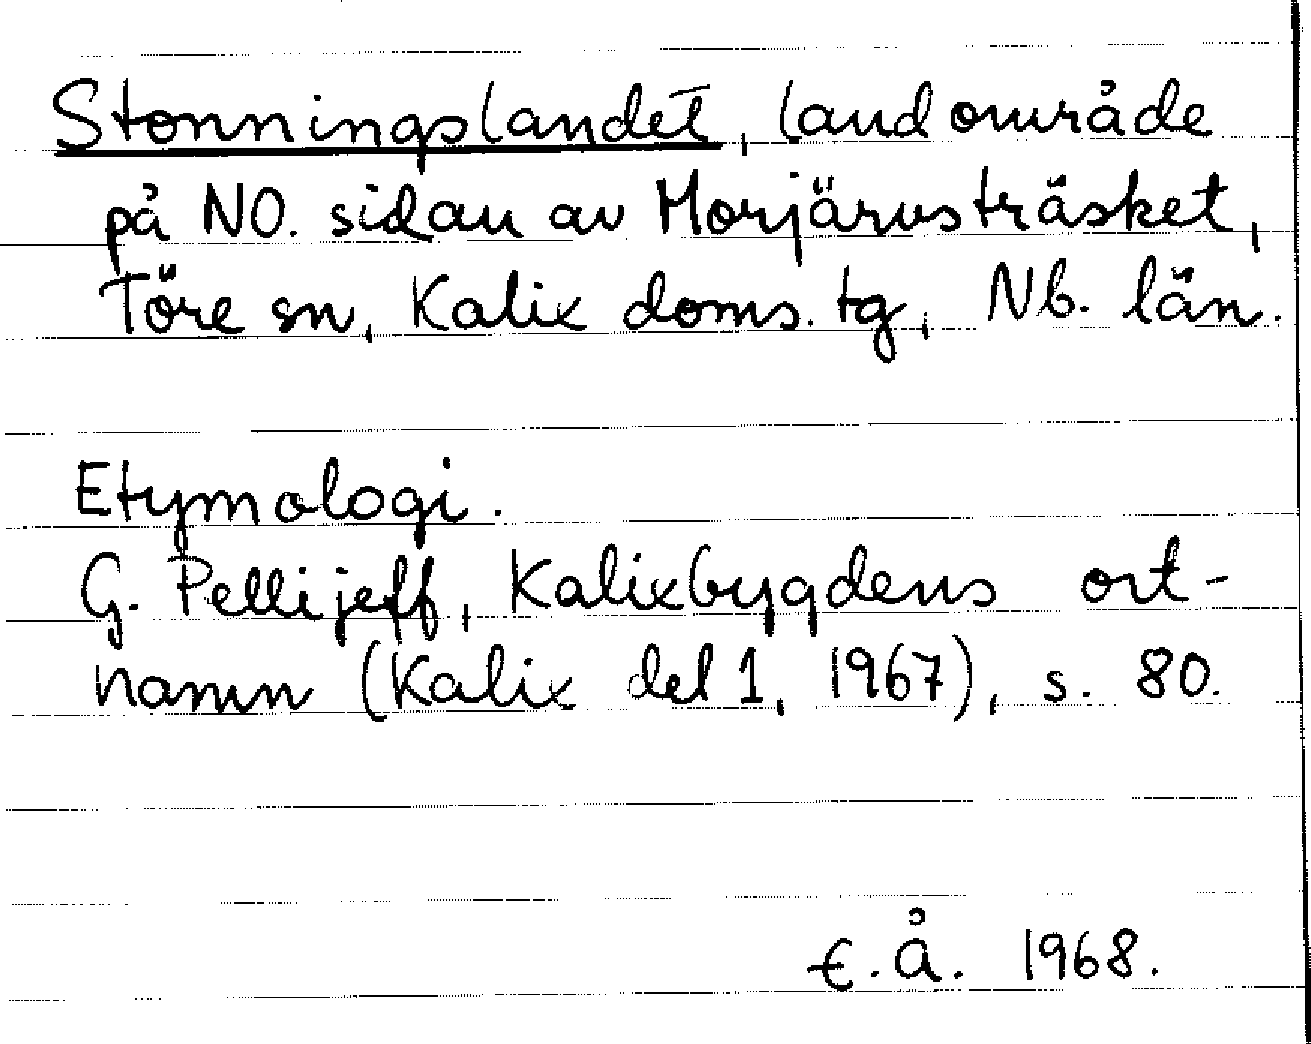 Stonningslandet, landområde
på NO. sidan av Morjärvsträsket,
Töre sn, Kalix doms. tg, Nb. län.
Etymologi.
G. Pellijeff, Kalixbygdens ort-
namn (Kalix del 1, 1967), s. 80.
E. Å. 1968.